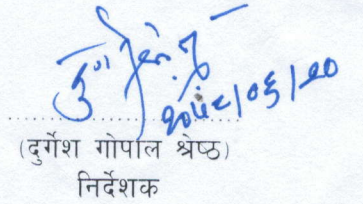 २०५८/०६/२०
(दुर्गेश गोपाल श्रेष्ठ)
निर्देशक